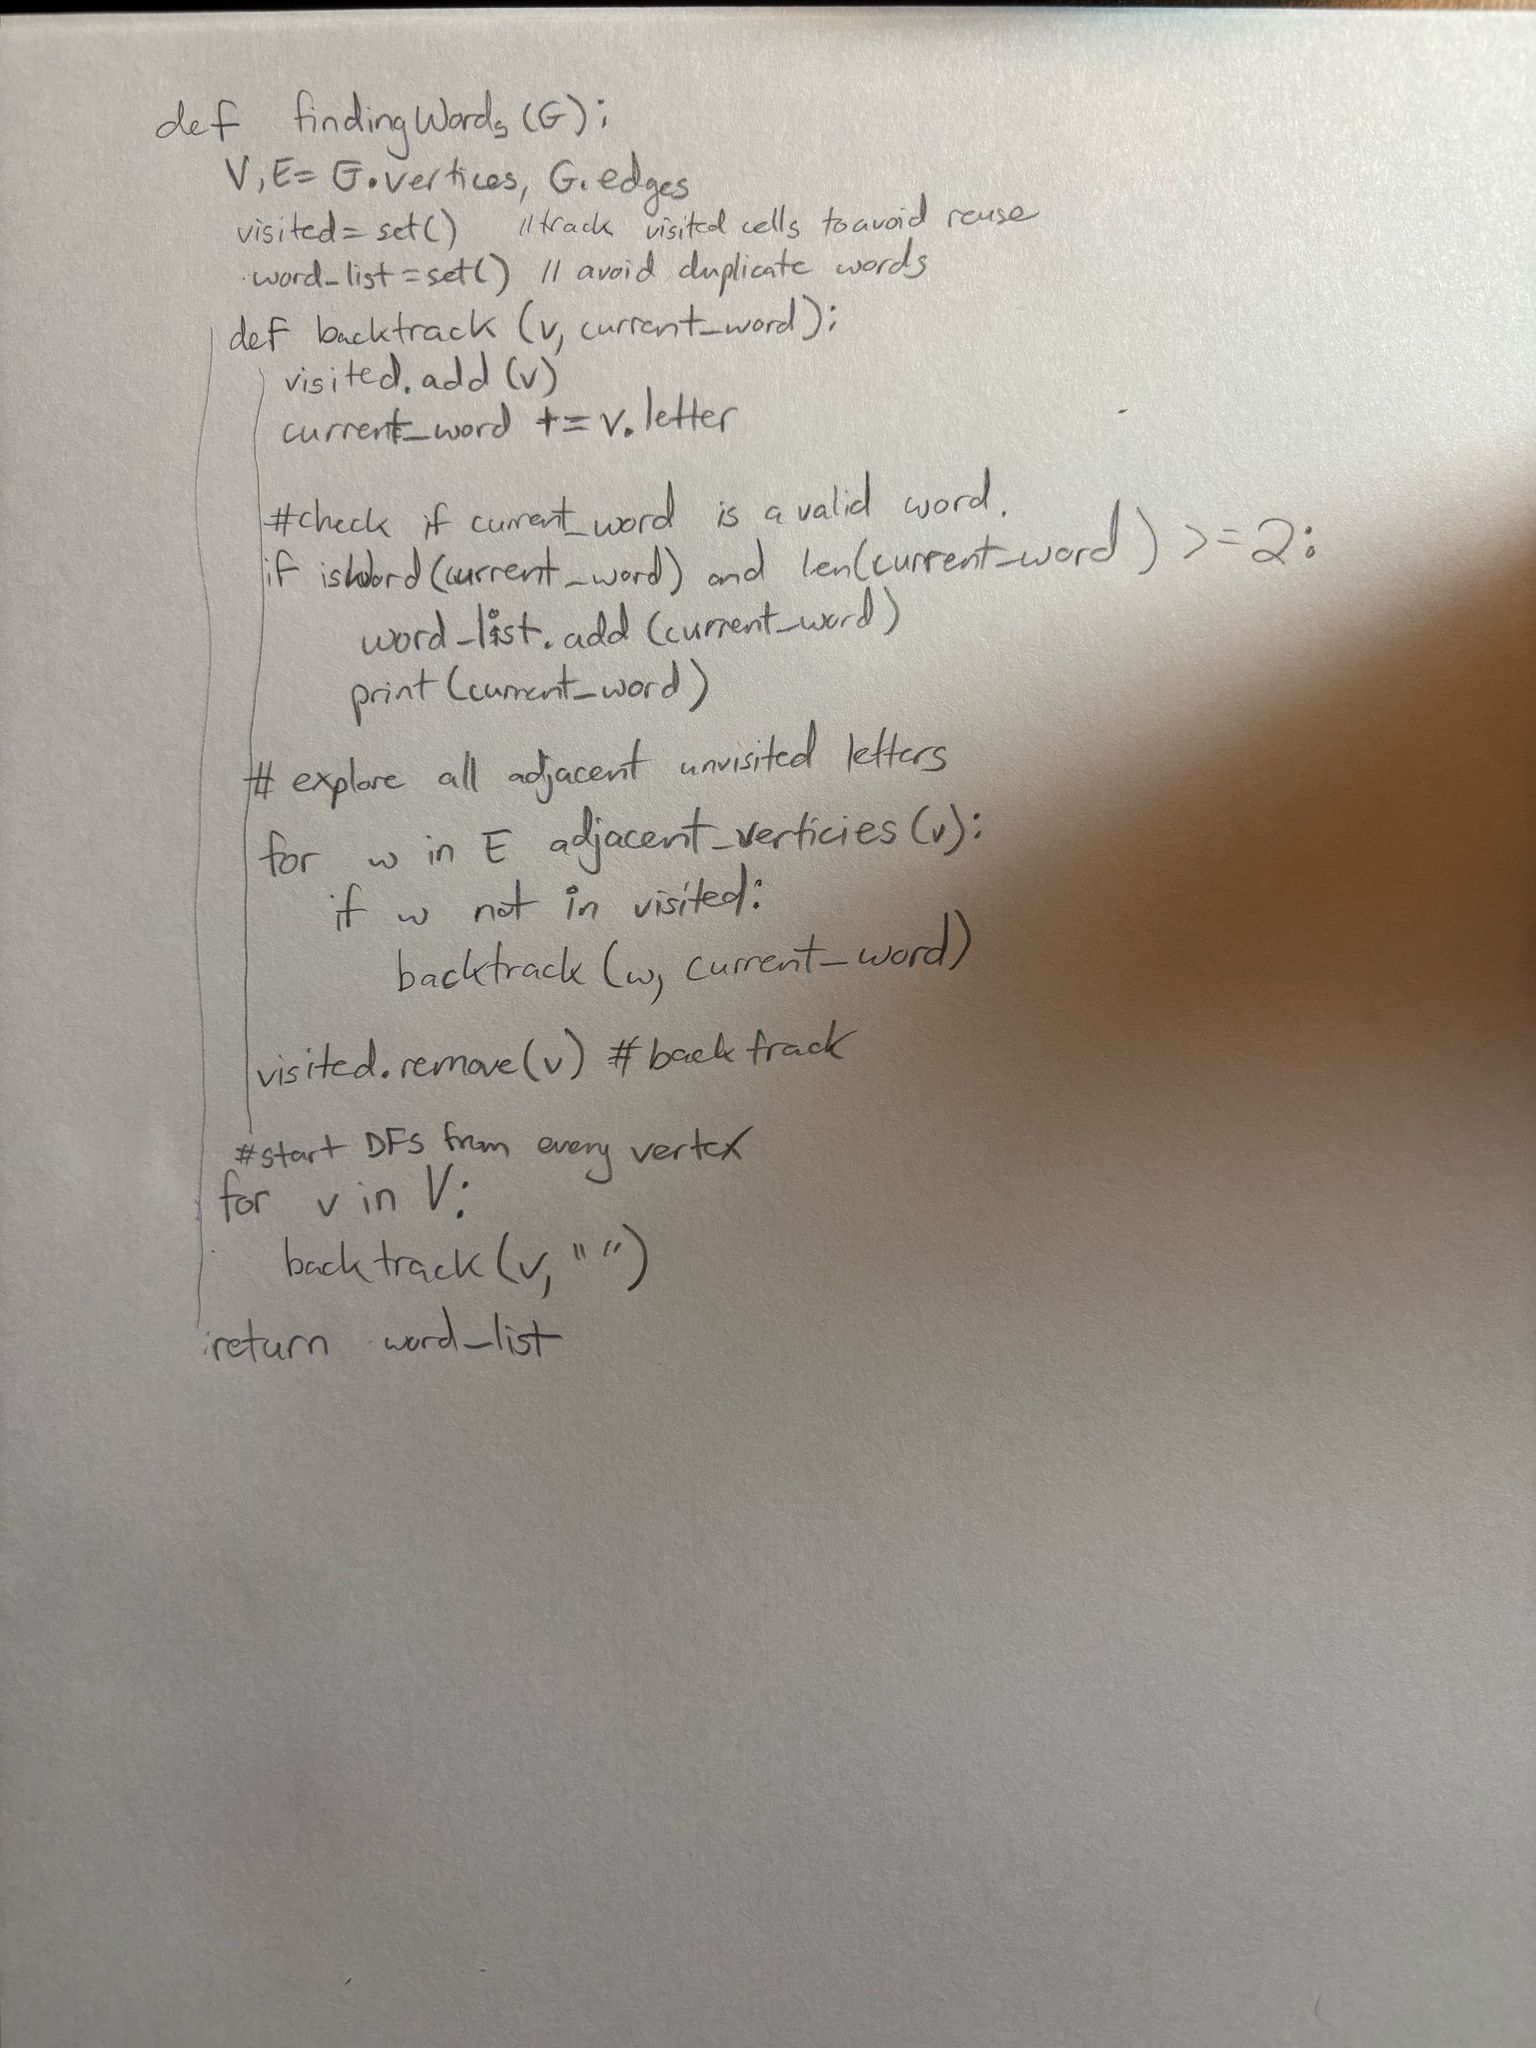 def findingWords(G):
V,E= G.vertices, G.edges
visited=set() //track visited cells to avoid reuse
word_list=set() // avoid duplicate words
def backtrack (v, current_word):
visited.add (v)
current_word += v.letter
#check if current_word is a valid word.
if isWord(current_word) and len(current_word) >=2:
word_list.add (current_word)
print(current_word)
# explore all adjacent unvisited letters
for w in E adjacent_verticies(v):
if w not in visited:
backtrack (w, current_word)
visited.remove(v) #backtrack
#start DFS from every vertex
for v in V:
backtrack(v, "")
return word_list